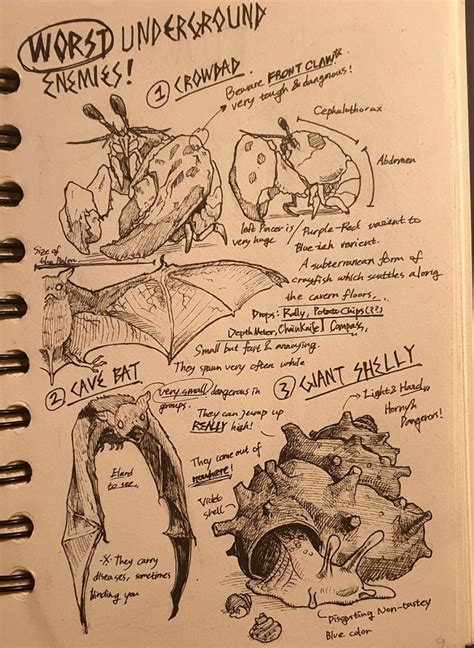 WORST UNDERGROUND
ENEMIES!
① CRAWDAD
Beware FRONT CLAW※
very tough & dangrous!
Cephalothorax
Abdomen
left Pincer is
very huge
Purple-Red varient to
Blue-ish varient.
A subterranean form of
crayfish which scuttles along
the cavern floors,
Drops: Rally, PotatoChips(??)
DepthMeter, ChainKnife, Compass,
Size of
the Palm
Small but fast & annoying.
They spawn very often while
② CAVE BAT
very small dangerous in
groups.
③ GIANT SHELLY
They can jump up
REALLY high!
Light & Hard
Horny &
Dangerous!
They come out of
nowhere!
to see
shell
-※- They carry
diseases, sometimes
blinding you
Disgusting Non-tastey
Blue color
9